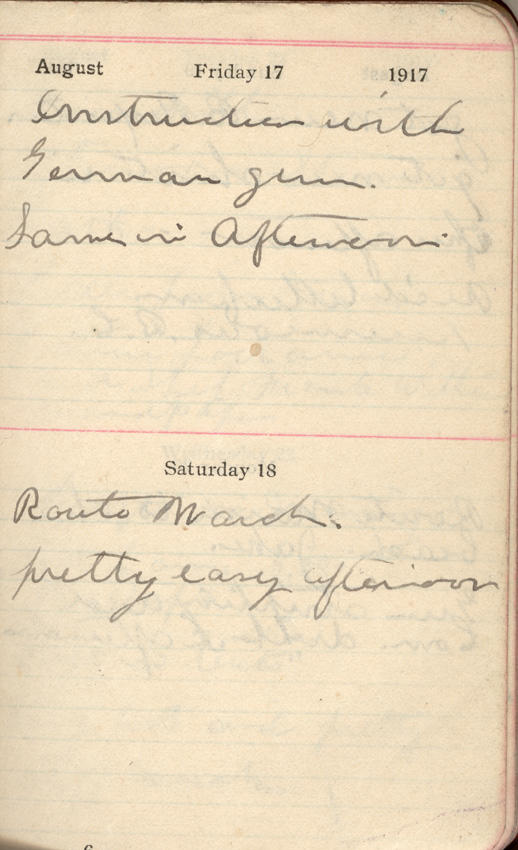 August Friday 17 1917
Instruction with
German gun.
Same in Afternoon.
Saturday 18
Route March.
pretty easy afternoon